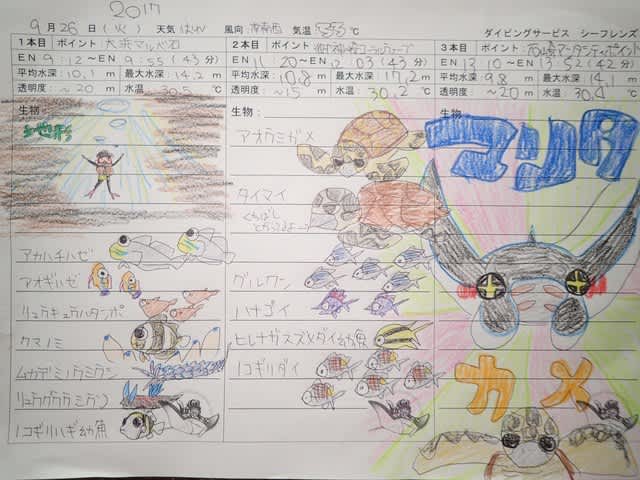 2017
9月26日(火) 天気 はれ 風向 南南西 気温 33℃ ダイビングサービス シーフレンズ
1本目 ポイント
EN 9:12〜EN 9:55(43分)
平均水深:10.1m 最大水深:14.2m
透明度:〜20m 水温 30.5℃
生物:
地形
アカハチハゼ
アオギハゼ
リュウキュウハタンポ
クマノミ
ムカデミノウミウシ
リュウグウウミウシ
ノコギリハギ幼魚
2本目 ポイント
EN 11:20〜EN 12:03(43分)
平均水深:10.8m 最大水深:17.2m
透明度:〜15m 水温 30.2℃
生物:
アオウミガメ
タイマイ
くちばし
とがってるよー
グルクン
ハナゴイ
ヒレナガスズメダイ幼魚
ノコギリダイ
3本目 ポイント
EN 13:10〜EN 13:52(42分)
平均水深 9.8m 最大水深:14.1m
透明度:〜20m 水温 30.4℃
生物:
マンタ
カメ